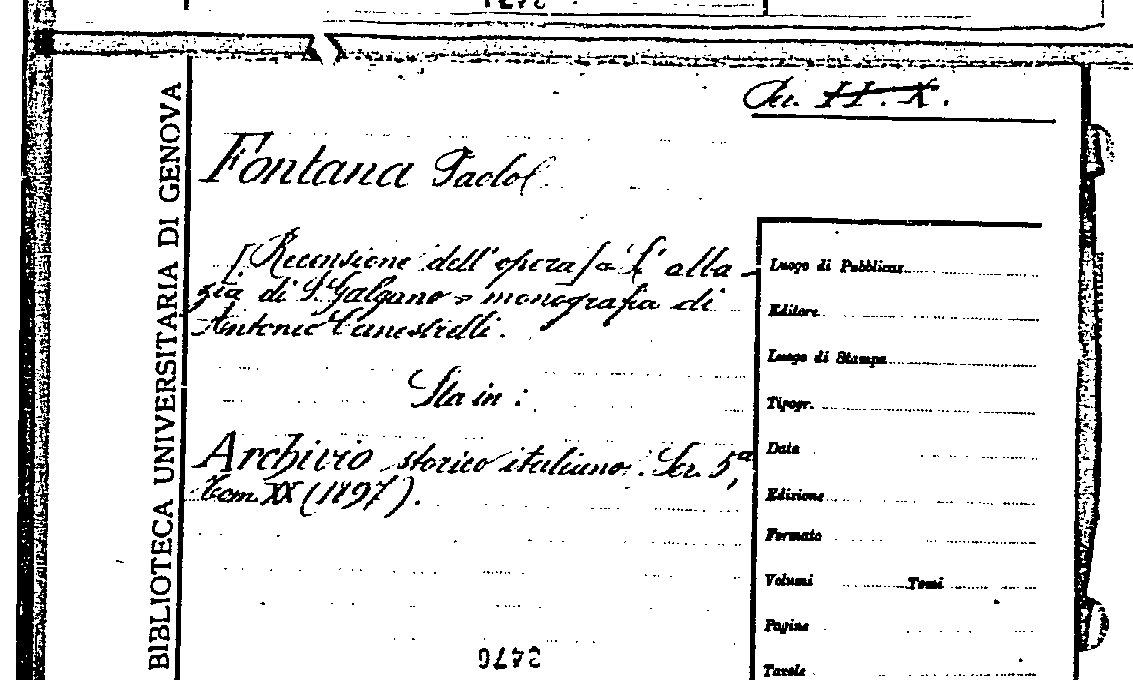 BIBLIOTECA UNIVERSITARIA DI GENOVA
Per. II. X.
Fontana Paolo
[Recensione dell'opera] "L' abba-
zia di S. Galgano" monografia di
Antonio Canestrelli.
Sta in:
Archivio storico italiano. Ser. 5ª,
Tom. XX (1897).
Luogo di Pubblicaz.
Editore
Luogo di Stampa
Tipogr.
Data
Edizione
Formato
Volumi Tomi
Pagine
Tavole
3470